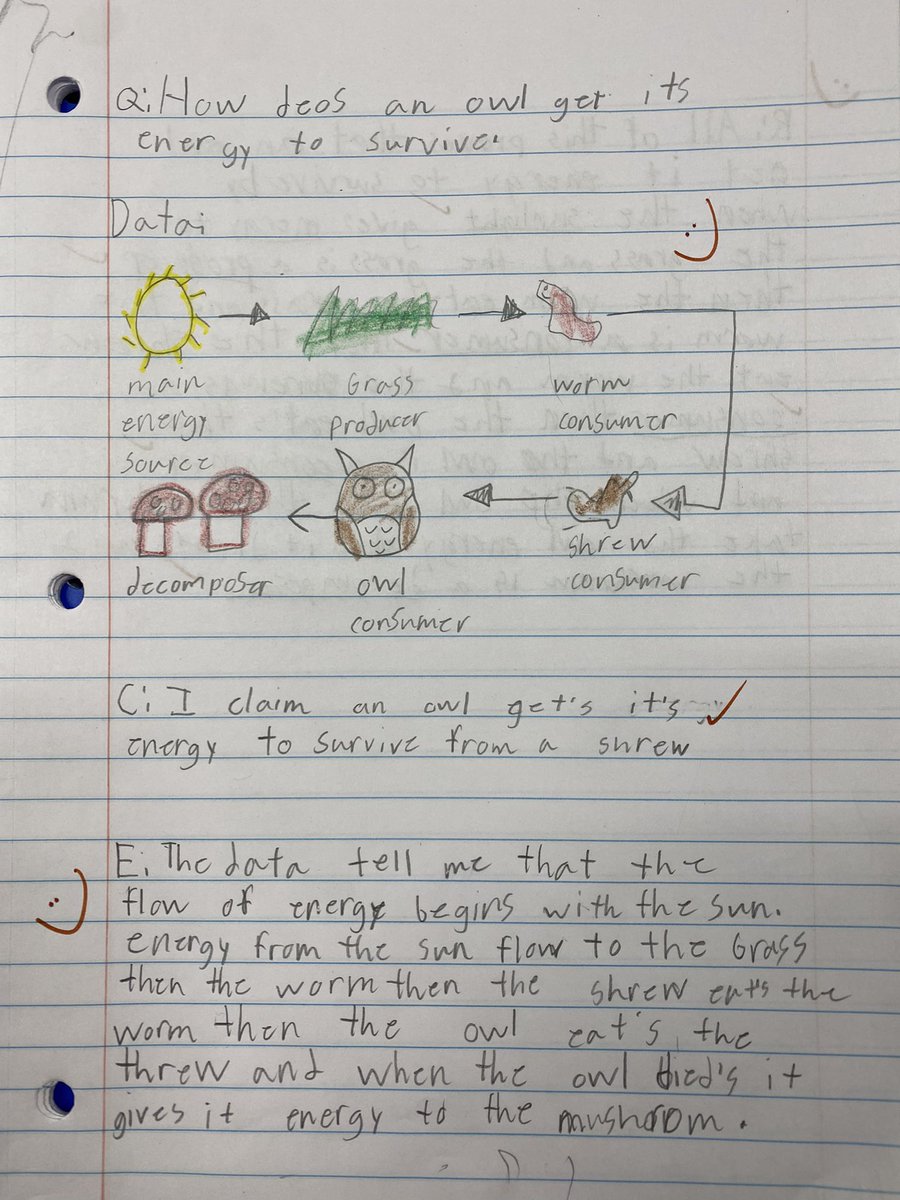 Q: How deos an owl get its
energy to survive.
Data:
main
energy
source
Grass
producer
worm
consumer
decomposer
owl
consumer
shrew
consumer
C: I claim an owl get's it's
energy to survive from a shrew
E. The data tell me that the
flow of energy begins with the sun.
energy from the sun flow to the Grass
then the worm then the shrew eat's the
worm then the owl eat's the
threw and when the owl died's it
gives it energy to the mushroom.